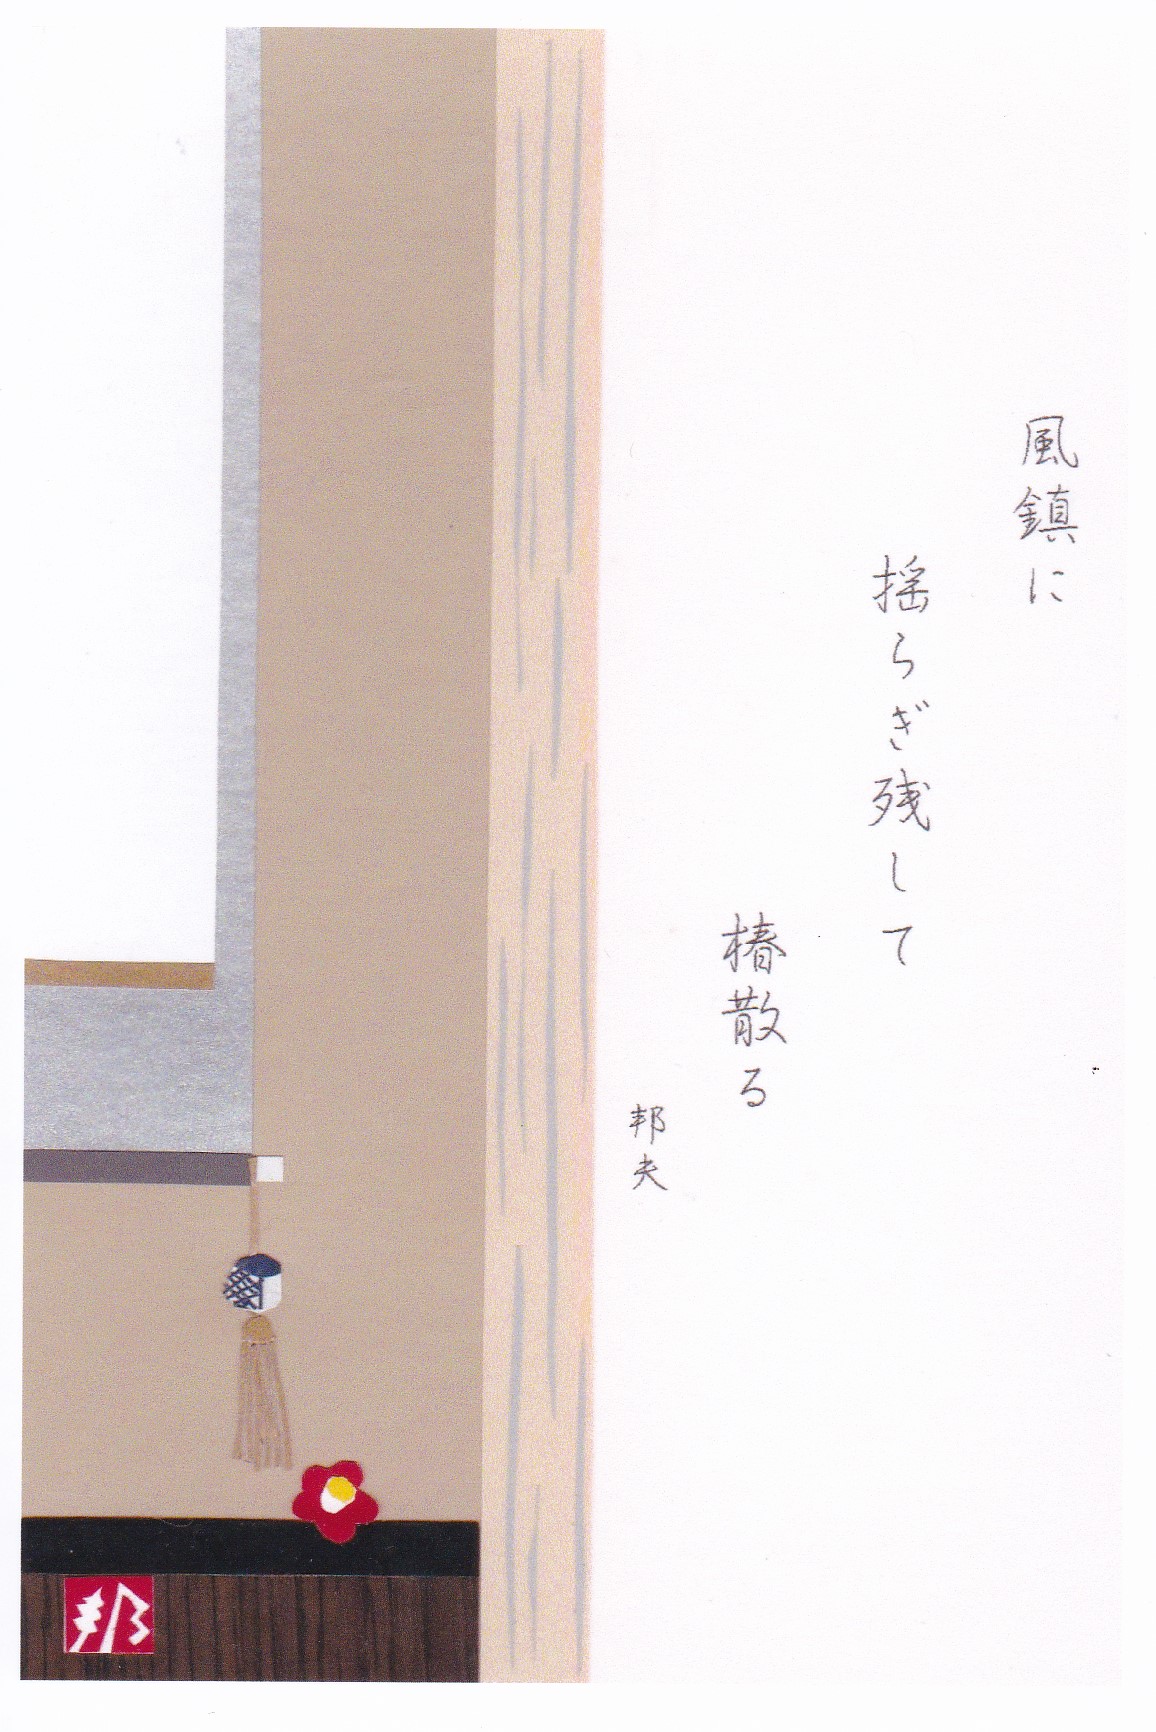 風鎮に
揺らぎ残して
椿散る
邦夫
邦